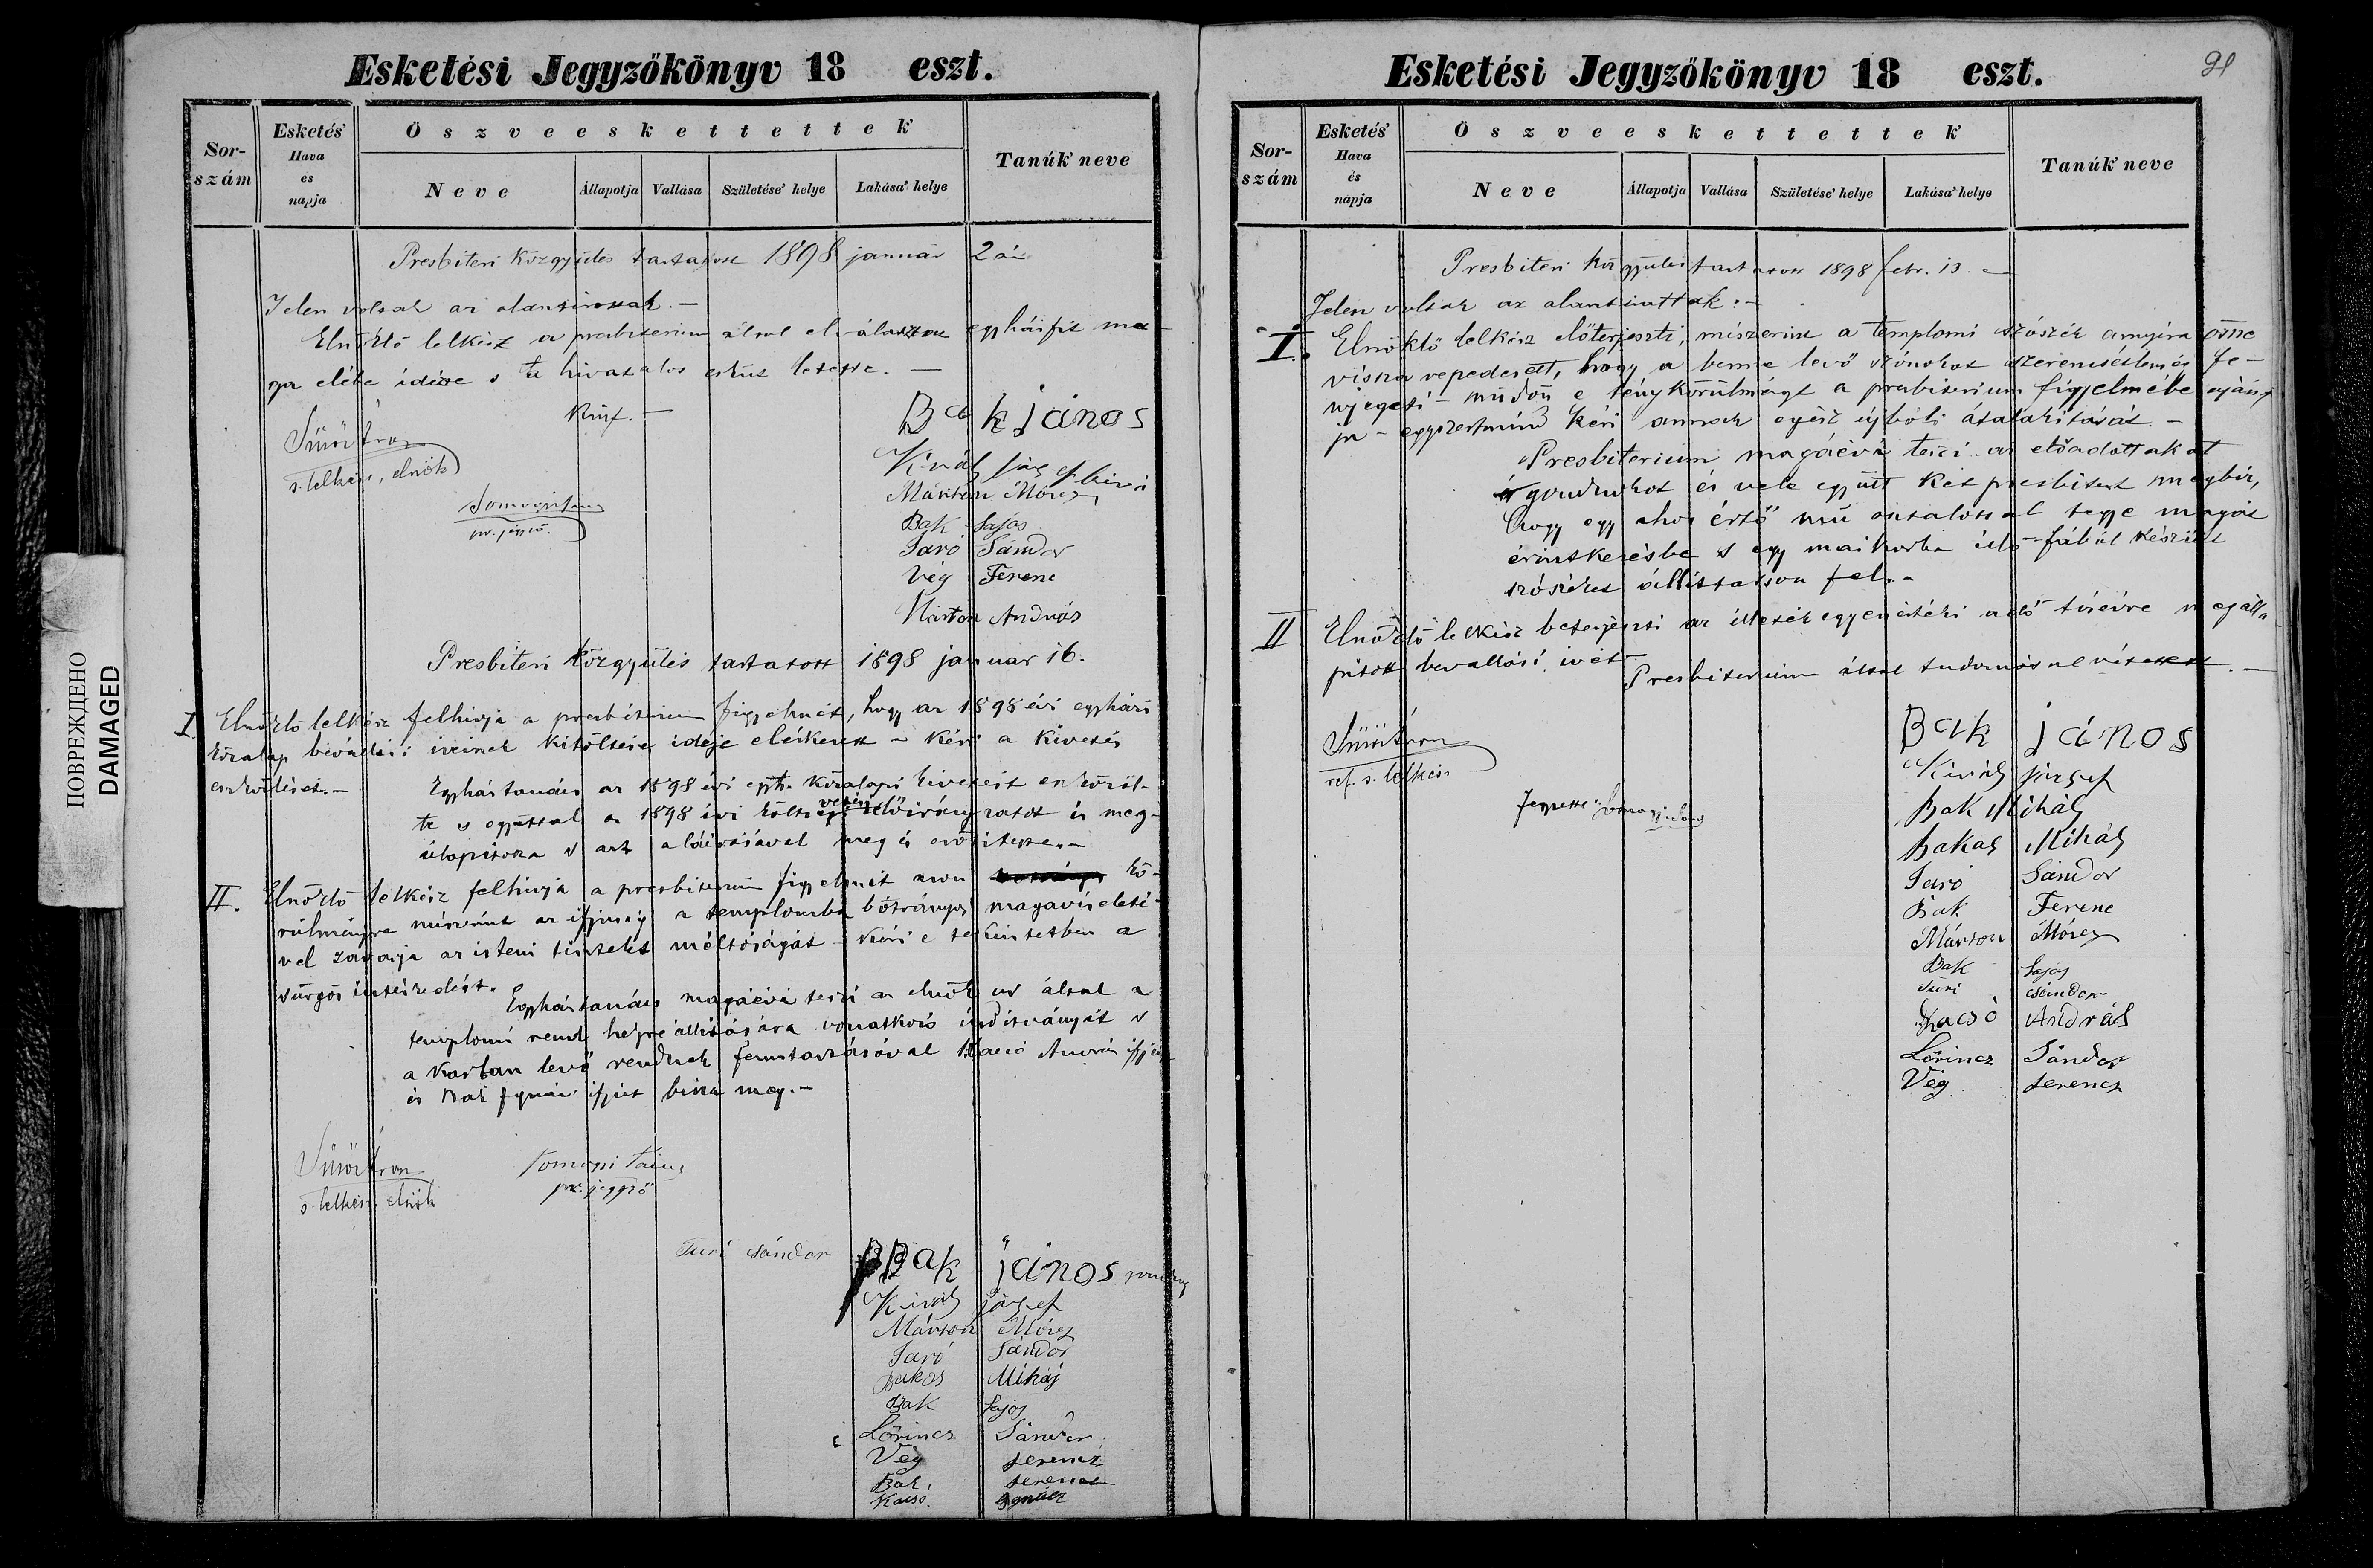 ПОВРЕЖДЕНО
DAMAGED
Esketési Jegyzőkönyv 18 eszt.
Sor-
szám
Esketés'
Hava
es
napja
Öszveeskettettek
Neve
Állapotja
Vallása
Születése' helye
Lakása' helye
Tanúk neve
Presbiteri közgyűlés tartatott 1898 január 2án
Jelen voltak az alantirottak.-
Elnöklő lelkész a presbiterium által elválasztott egyházfit ma-
ga elébe idézve s a hivatalos esküt letette.-
Kmf.-
s. lelkész, elnök
pr. jegyző.
Bak János
Király
Márton Móricz
Bak Lajos
Sándor
Vég Ferenc
Márton András
Presbiteri közgyűlés tartatott 1898 januar 16.
I. Elnöklő lelkész felhivja a presbiterium figyelmét, hogy az 1898 évi egyházi
közalap bevallási iveinek kitöltési ideje elérkezett - kéri a kivetés
eszközlését.-
Egyháztanács az 1898 évi egyh. közalapi kivetést eszközöl-
te s egyuttal az 1898 évi költségvetési előirányzatot is meg-
állapitotta s azt aláirásával meg is erősitette.-
II. Elnöklő lelkész felhivja a presbiterium figyelmét azon kö-
rülményre miszerint az ifjuság a templomba botrányos magaviseleté-
vel zavarja az isteni tisztelet méltóságát - kéri e tekintetben a
sürgős intézkedést.
Egyháztanács magáévá teszi az elnök ur által a
templomi rend helyreállitására vonatkozó inditványát s
a karban levő rendnek fenntartásával Kacsó András ifjut
és Bak ifjut bizza meg.-
s. lelkész, elnök
pr. jegyző
Turi Sándor
Bak János
Király József
Márton Móricz
Sándor
Bakos Miháj
Bak Lajos
Lőrincz Sándor
Vég Ferencz
Bak Ferencz
Kacsó Ignácz
91
Esketési Jegyzőkönyv 18 eszt.
Sor-
szám
Esketés'
Hava
és
napja
Öszveeskettettek
Neve
Állapotja
Vallása
Születése' helye
Lakása' helye
Tanúk neve
Presbiteri közgyülés tartatott 1898 febr. 13.
Jelen voltak az alantirottak:-
I. Elnöklő lelkész előterjeszti, miszerint a templomi szószék annyira össze
vissza repedezett, hogy a benne levő szónokot szerencsétlenség fe-
nyegeti - midőn e ténykörülményt a presbiterium figyelmébe ajánl-
ja - egyszersmind kéri annak egész ujbóli átalakitását.-
Presbiterium magáévá teszi az előadottakat
gondnokot és vele együtt két presbitert megbiz,
hogy egy ahoz értő mű asztalossal tegye magát
érintkezésbe s egy mai korba illő fából készült
szószéket állittasson fel.-
II Elnöklő lelkész beterjeszti az illeték egyenértéki adó tizévre megálla
pitott bevallási ivét-
Presbiterium által tudomásul vétetett.-
ref. s. lelkész
Jegyzette
Bak János
Király József
Bak Mihály
Bakos Mihály
Sándor
Bak Ferenc
Márton Móricz
Bak Lajos
Turi Sándor
Kacsó András
Lőrincz Sándor
Vég Ferencz